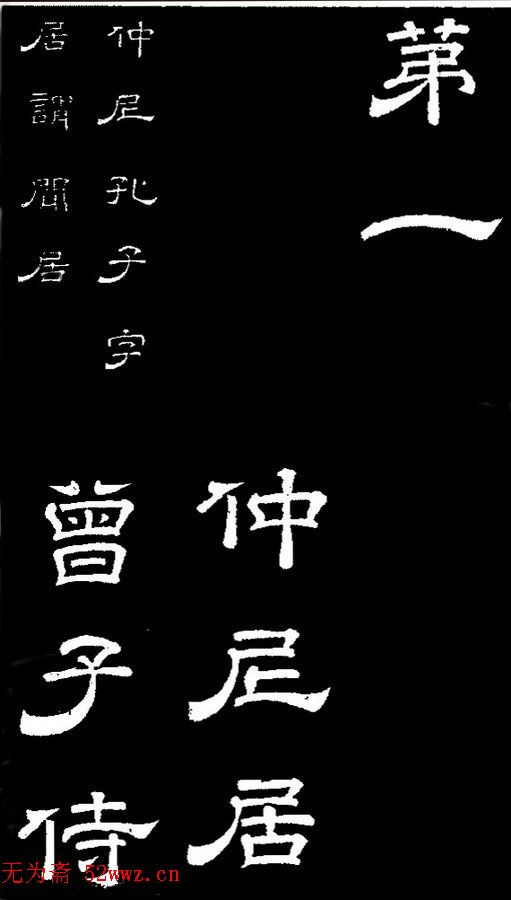 苐一
仲尼居
仲尼孔子字
居謂閒居
曾子侍
无为斋 52wwz.cn